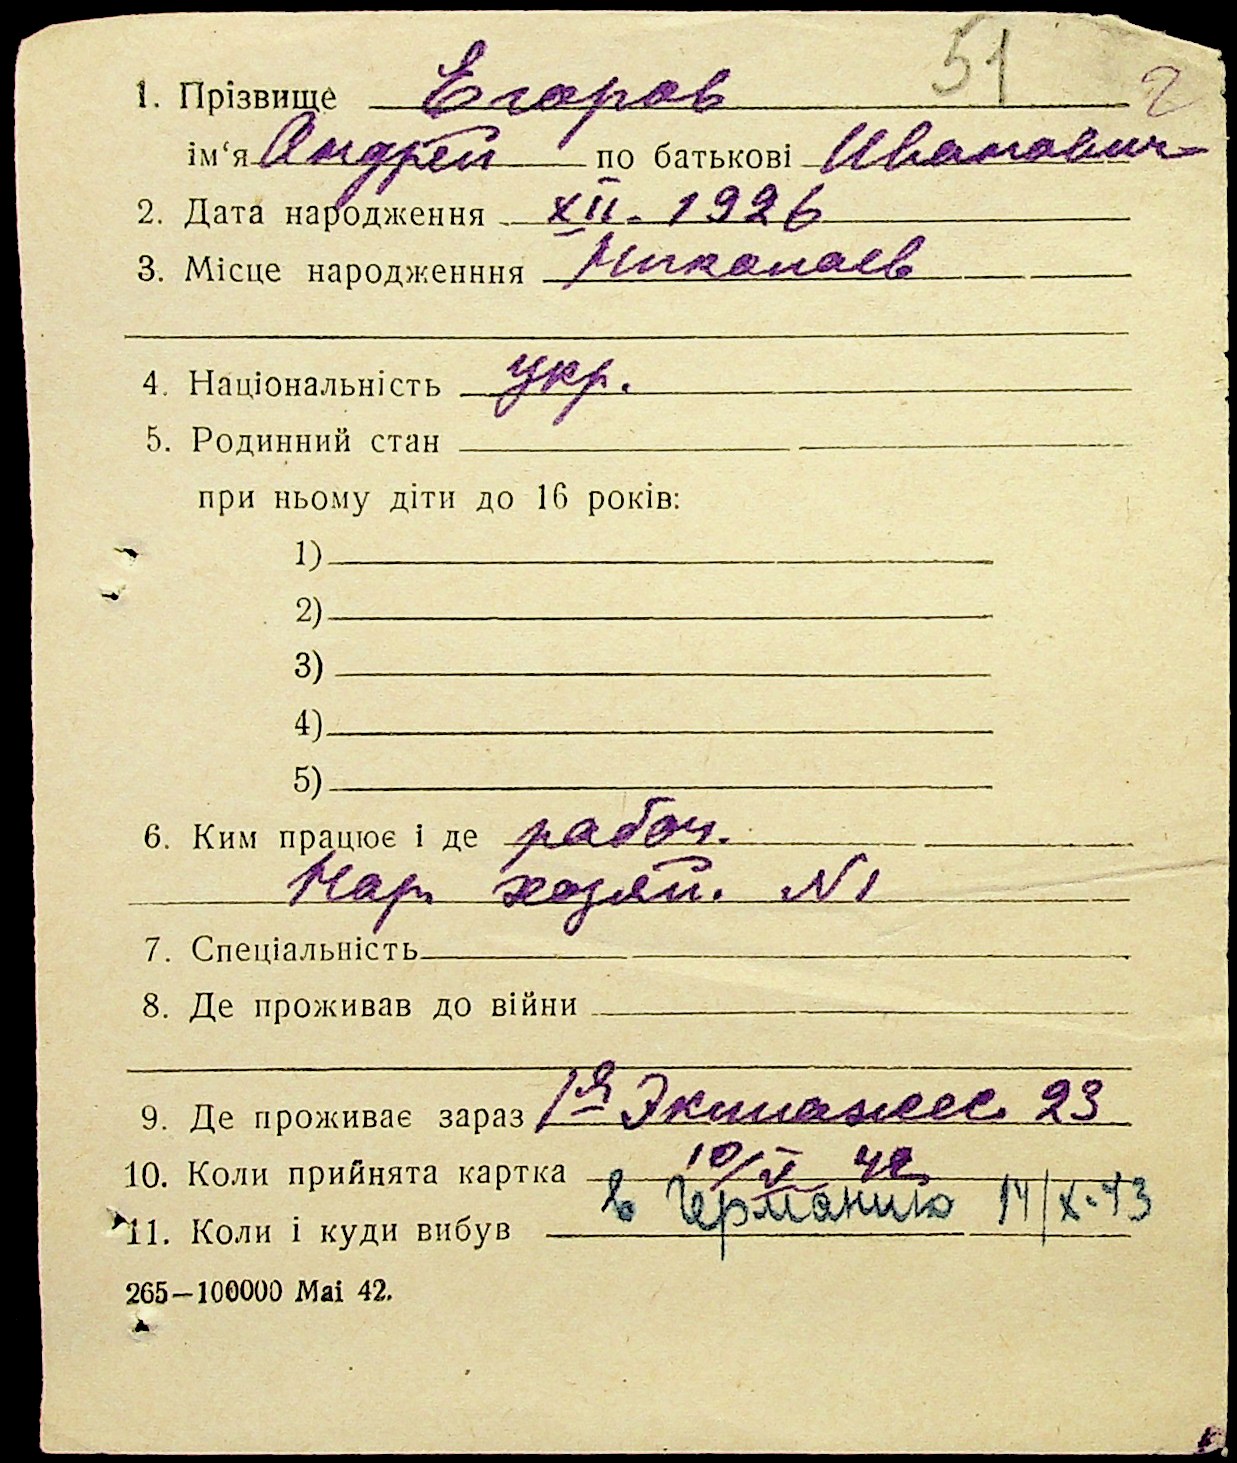 51 2
1. Прізвище Егоров
ім‘я Андрей по батькові Иванович
2. Дата народження XII. 1926
3. Місце народженння Николаев
4. Національність укр.
5. Родинний стан
при ньому діти до 16 років:
1)
2)
3)
4)
5)
6. Ким працює і де рабоч.
Нар. хозяй. N1
7. Спеціальність
8. Де проживав до війни
9. Де проживає зараз 1я Экипажес. 23
10. Коли прийнята картка 10/V 42
11. Коли і куди вибув в Германию 14/X-43
265—100000 Mai 42.